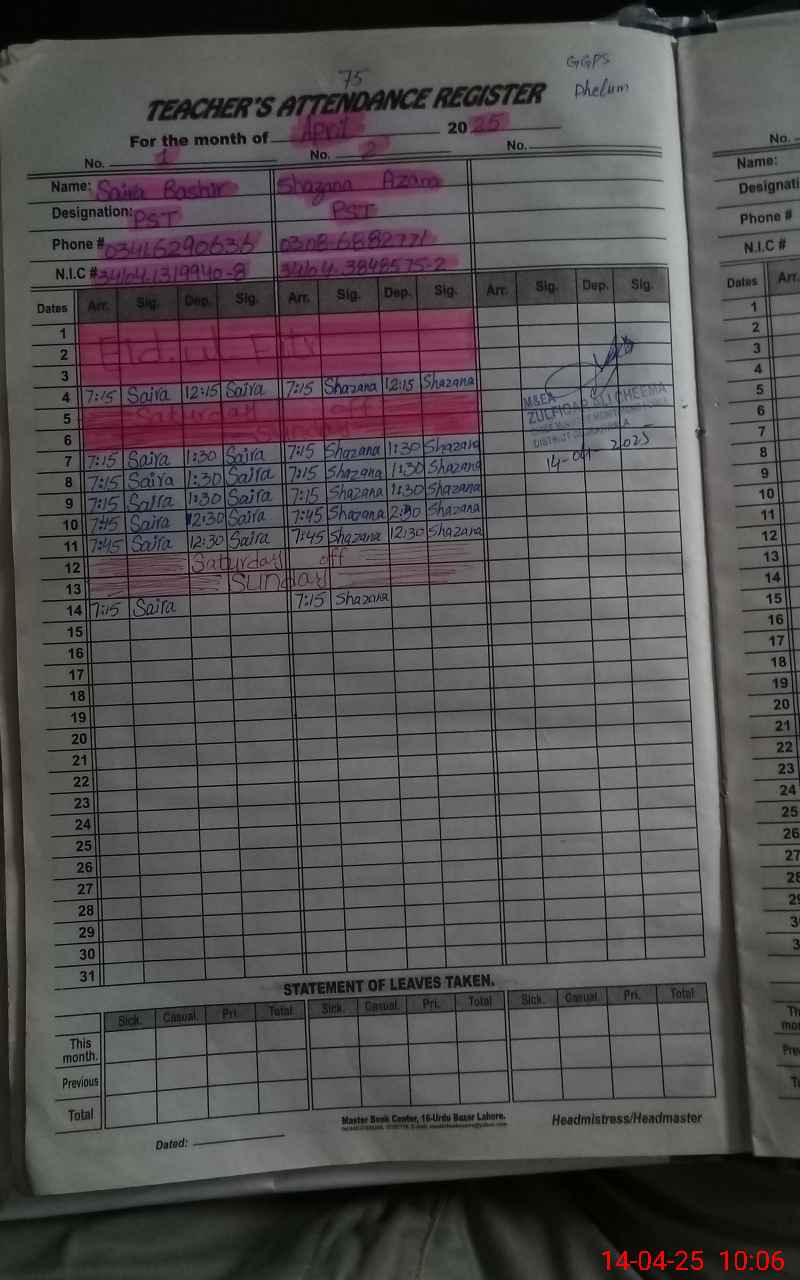 75
GGPS
Dhelum
TEACHER'S ATTENDANCE REGISTER
For the month of April 2025
No. 1 No. 2 No.
Name: Saira Bashir Shazana Azam
Designation: PST PST
Phone # 03416290636 0308-6882771
N.I.C # 34641319940-8 3464.3848575-2
Dates Arr. Sig. Dep. Sig. Arr. Sig. Dep. Sig. Arr. Sig. Dep. Sig.
1
2 Eid.ul Fitr
3
4 7:15 Saira 12:15 Saira 7:15 Shazana 12:15 Shazana
5 Saturday off
6
7 7:15 Saira 1:30 Saira 7:15 Shazana 1:30 Shazana
8 7:15 Saira 1:30 Saira 7:15 Shazana 1:30 Shazana
9 7:15 Saira 1:30 Saira 7:15 Shazana 1:30 Shazana
10 7:45 Saira 12:30 Saira 7:45 Shazana 2:30 Shazana
11 7:45 Saira 12:30 Saira 7:45 Shazana 12:30 Shazana
12 Saturday off
13 Sunday
14 7:15 Saira 7:15 Shazana
15
16
17
18
19
20
21
22
23
24
25
26
27
28
29
30
31
M&EA
ZULFIQAR ALI CHEEMA
DISTRICT
14-04-2025
STATEMENT OF LEAVES TAKEN.
Sick. Casual. Pri. Total Sick. Casual. Pri. Total Sick. Casual. Pri. Total
This month.
Previous
Total
Master Book Center, 16-Urdu Bazar Lahore.
Headmistress/Headmaster
Dated:
No.
Name:
Designati
Phone #
N.I.C #
Dates Arr.
1
2
3
4
5
6
7
8
9
10
11
12
13
14
15
16
17
18
19
20
21
22
23
24
25
26
27
28
29
3
3
Th
mo
Pre
T
14-04-25 10:06